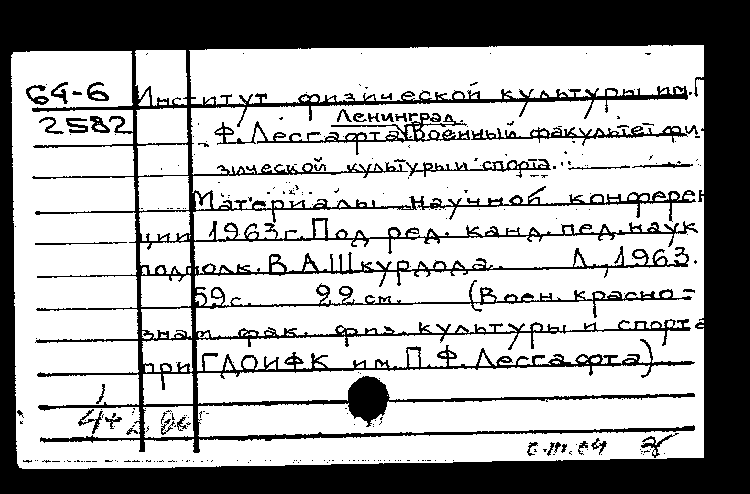 64-6 Институт физической культуры им. П.
Ленинград.
2582 Ф. Лесгафта. Военный факультет фи-
зической культуры и спорта.
Материалы научной конферен
ции 1963г. Под ред. канд. пед. наук
подполк. В.А. Шкурдода. Л., 1963.
59 с. 22 см. (Воен. красно=
знам. фак. физ. культуры и спорта
при ГДОИФК им. П.Ф. Лесгафта)